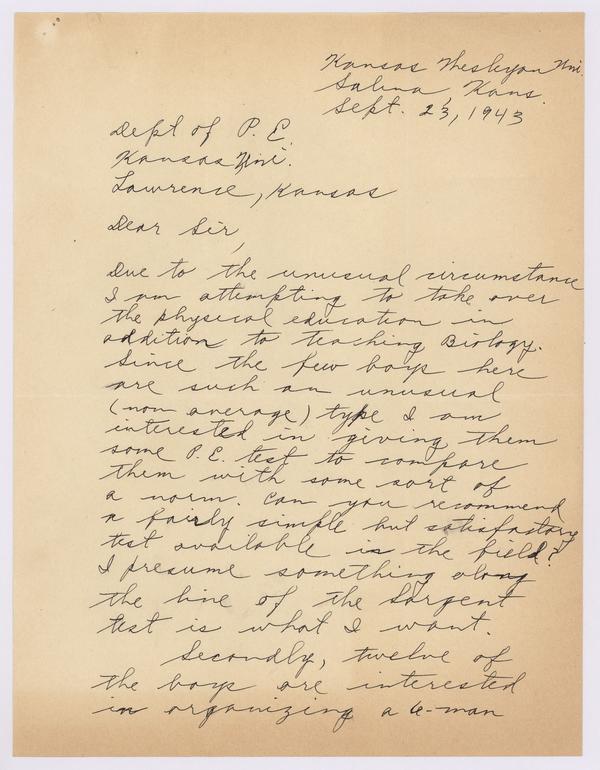 Kansas Wesleyan Uni.
Salina, Kans.
Sept. 23, 1943
Dept of P. E.
Kansas Uni.
Lawrence, Kansas
Dear Sir,
Due to the unusual circumstance
I am attempting to take over
the physical education in
addition to teaching Biology.
Since the few boys here
are such an unusual
(non average) type I am
interested in giving them
some P.E. test to compare
them with some sort of
a norm. Can you recommend
a fairly simple but satisfactory
test available in the field?
I presume something along
the line of the Sargent
test is what I want.
Secondly, twelve of
the boys are interested
in organizing a 6-man